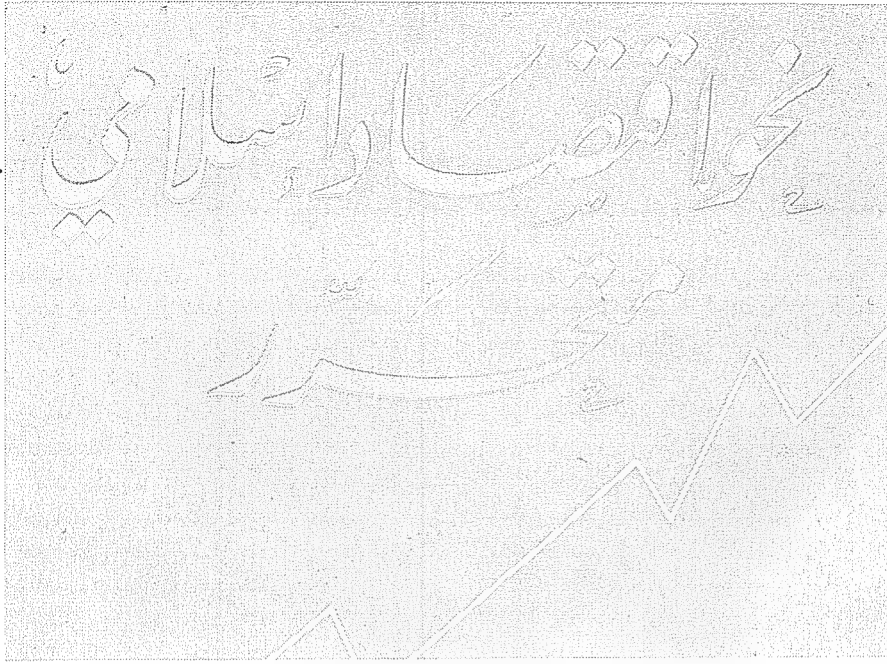 نحو اقتصاد إسلاميّ
متحرّر